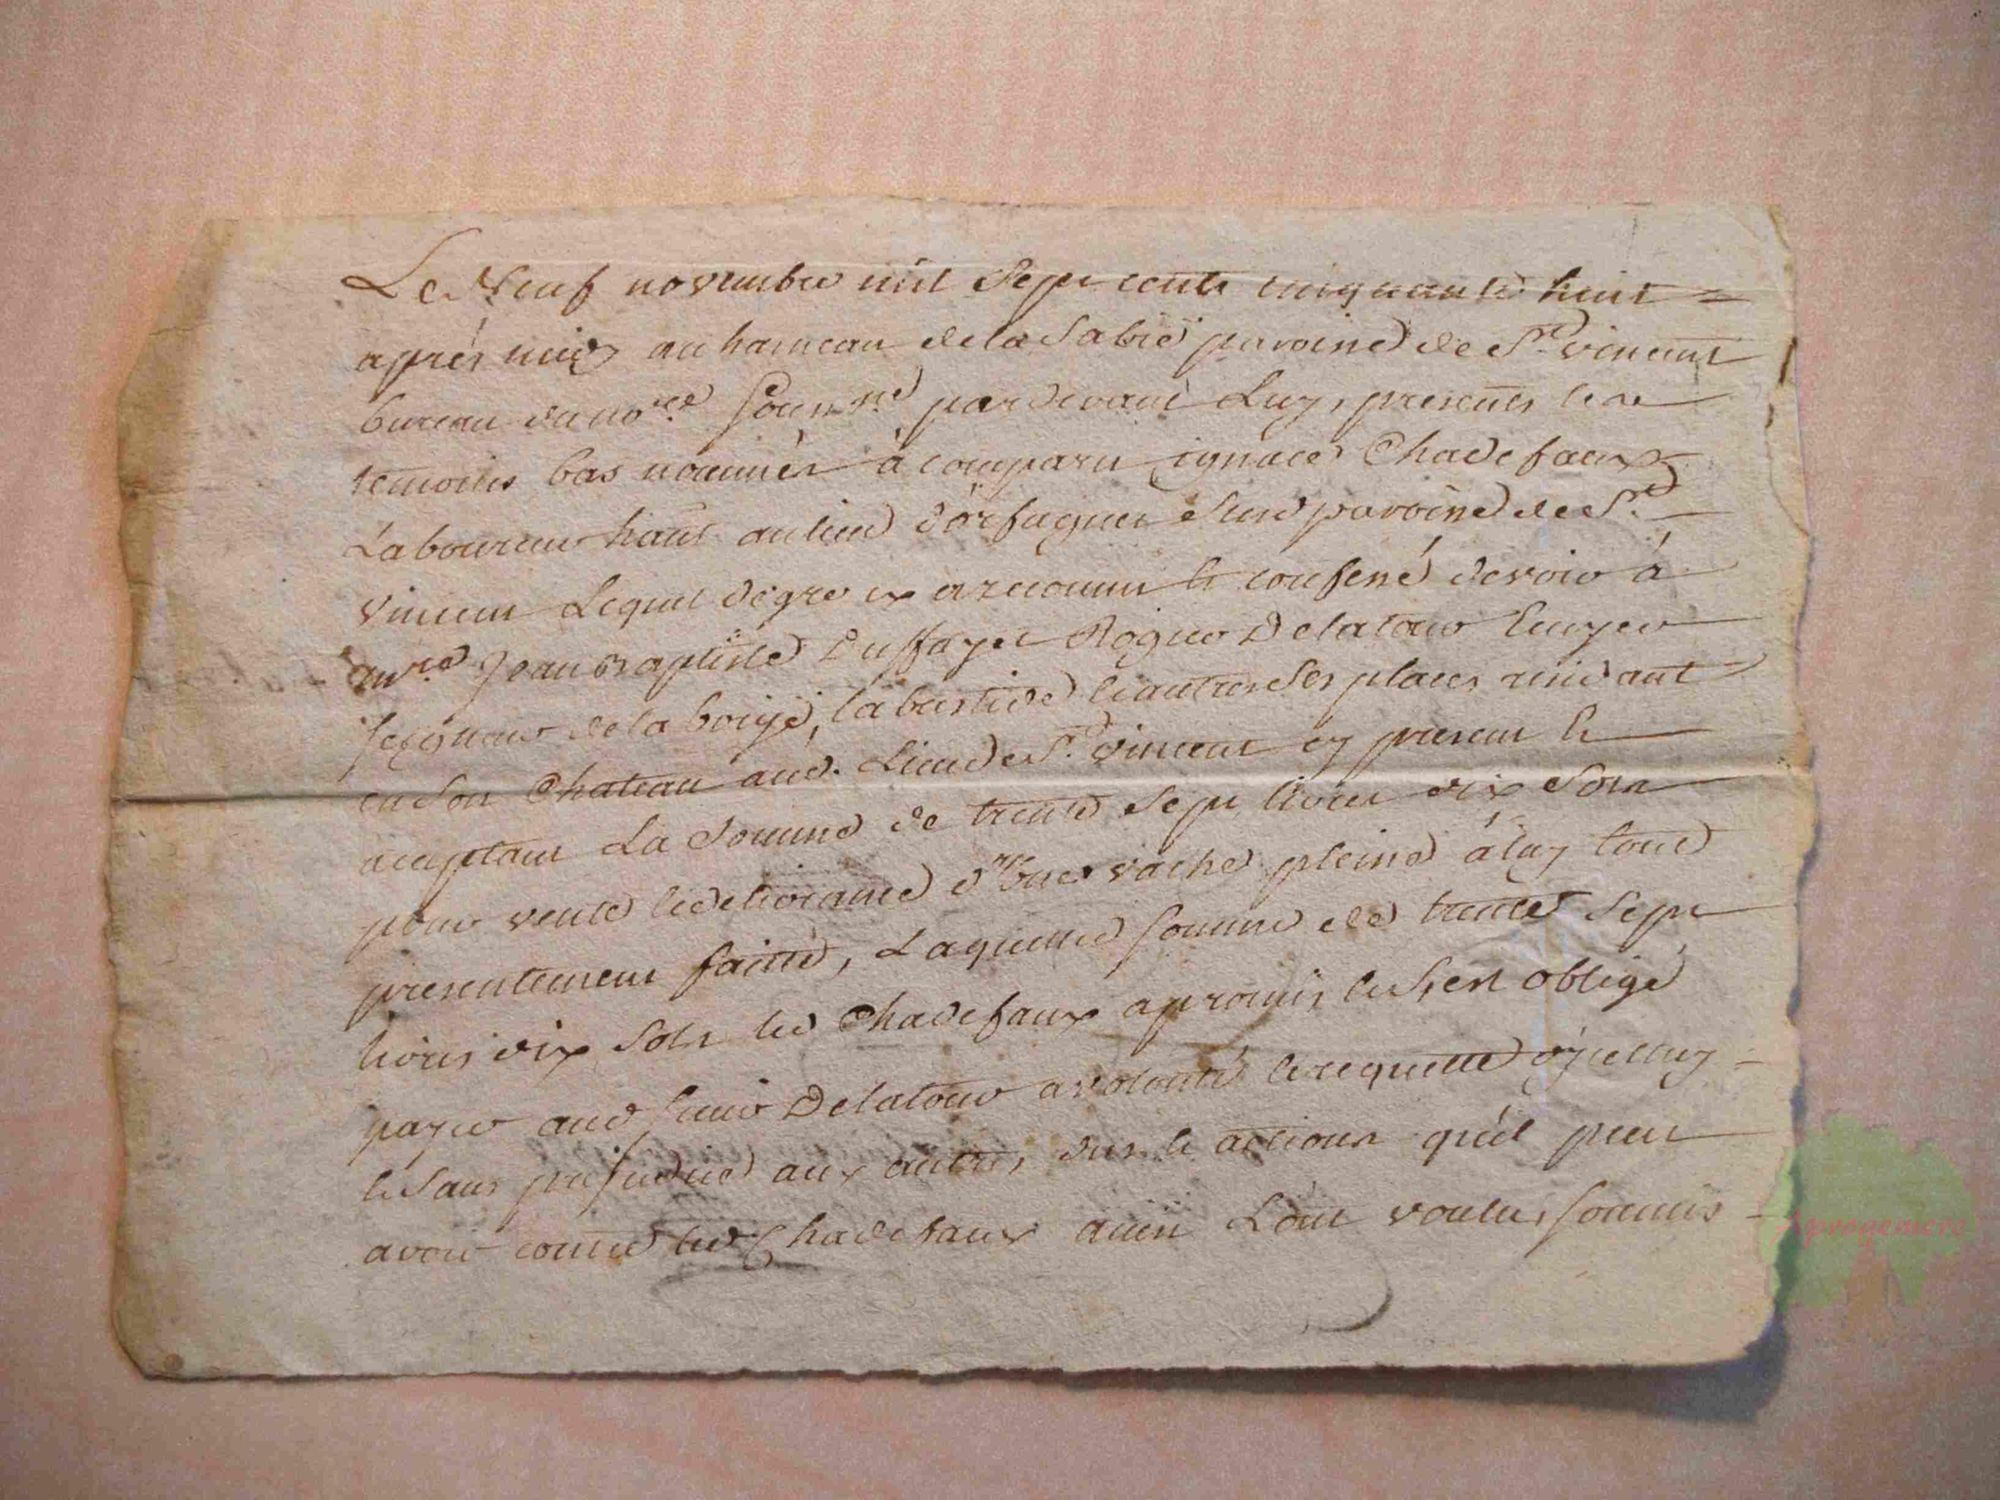 Le Neuf novembre mil sept cents cinquante huit
après midy au hameau de la Sabie paroisse de St. vincent
bureau du no.re sousn.é pardevant Luy, presents les
temoins bas nommés à comparu ignace Chadefaux
Laboureur habt. au lieu paroisse de St.
vincent Lequel de gre a reconnu et confessé devoir à
m.re Jean Baptiste Duffayet Delatour Ecuyer
seigneur de la borÿe, labastide et autres ses places residant
en son Chateau aud. Lieu de St. vincent cy present et
aceptant La Somme de trente Sept livres dix Sols
pour vente et delivrance d'une vache pleine à luy tout
presentement faitte, Laquelle somme de trente Sept
livres dix Sols led Chadefaux a promis et s'est obligé
payer aud sieur Delatour a volonté et requette d'ycelluy
et sans prejudice aux autres dus et actions qu'il peut
avoir contre led Chadefaux ainsi L'ont voulu, soumis
Aprogemere